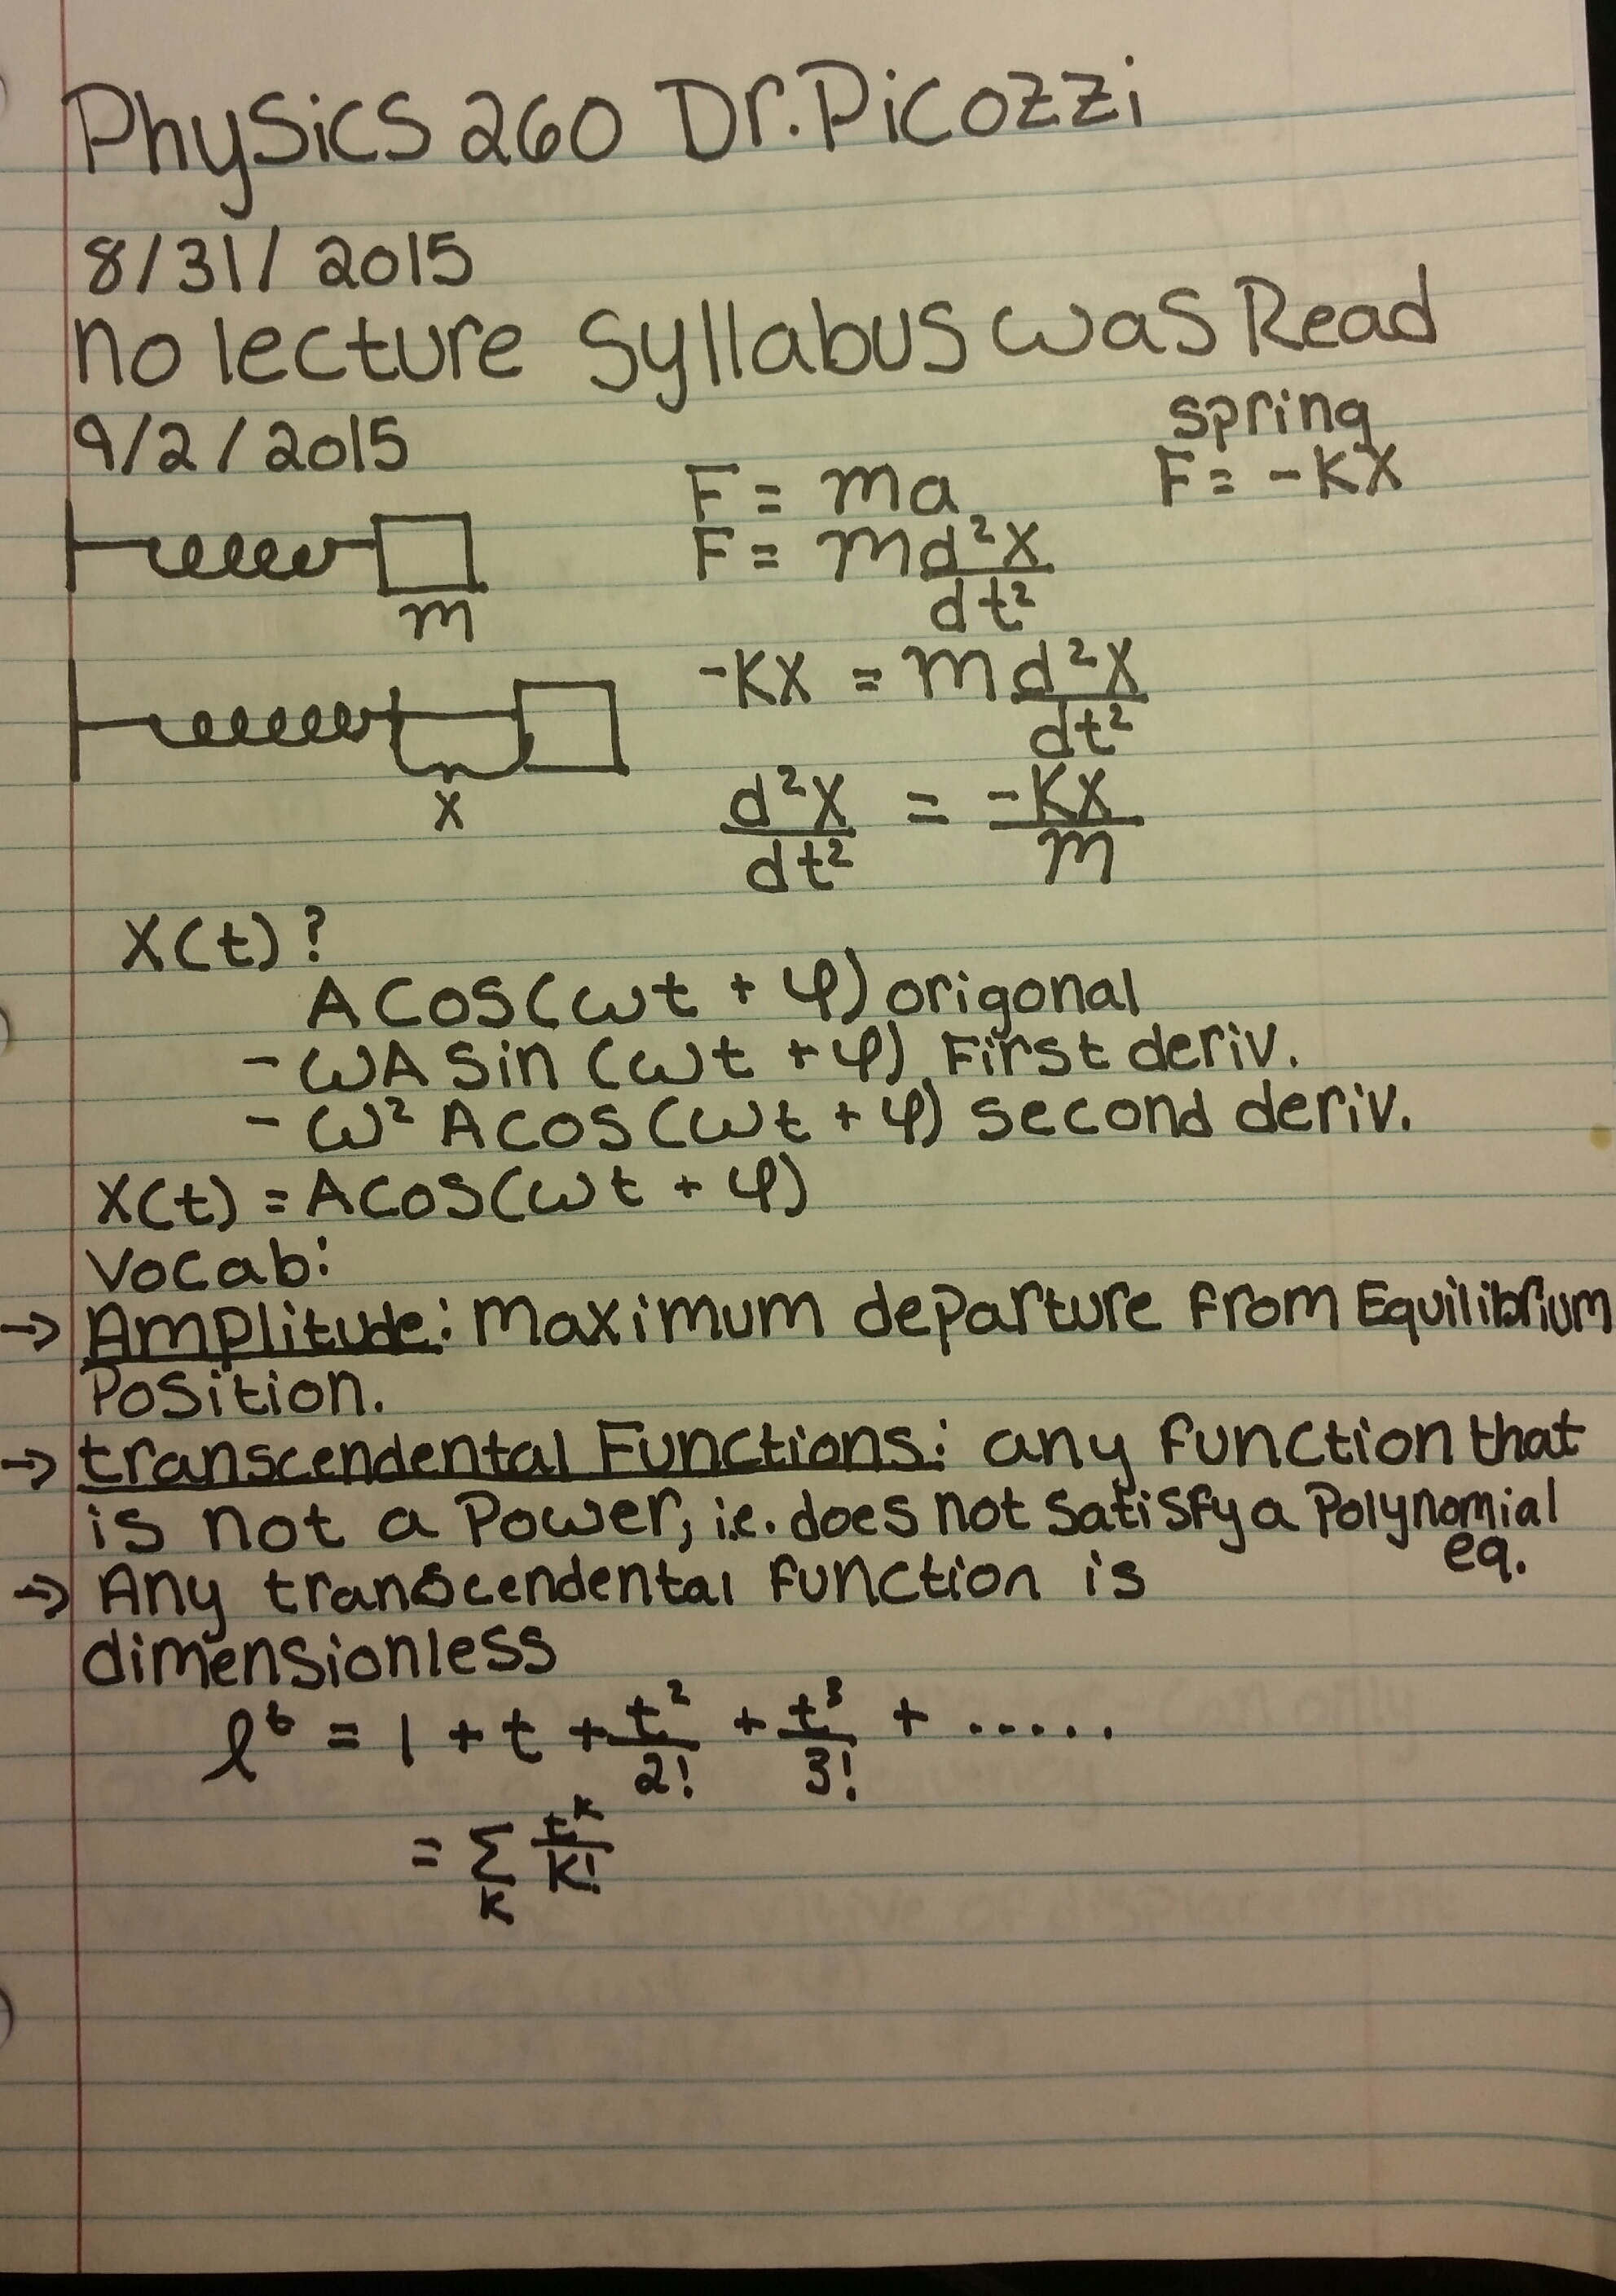 Physics 260 Dr. Picozzi
8/31/2015
no lecture syllabus was Read
9/2/2015
spring
F = -KX
F = ma
F = m d²x/dt²
m
-KX = m d²x/dt²
x
d²x/dt² = -KX/m
X(t)?
A cos(ωt + φ) origonal
- ωA sin (ωt + φ) First deriv.
- ω² A cos(ωt + φ) second deriv.
X(t) = A cos(ωt + φ)
Vocab:
→ Amplitude: Maximum departure from Equilibrium
Position.
→ transcendental Functions: any function that
is not a Power, i.e. does not satisfy a Polynomial
eq.
→ Any transcendental function is
dimensionless
e^t = 1 + t + t²/2! + t³/3! + .....
= Σ_K t^K/K!